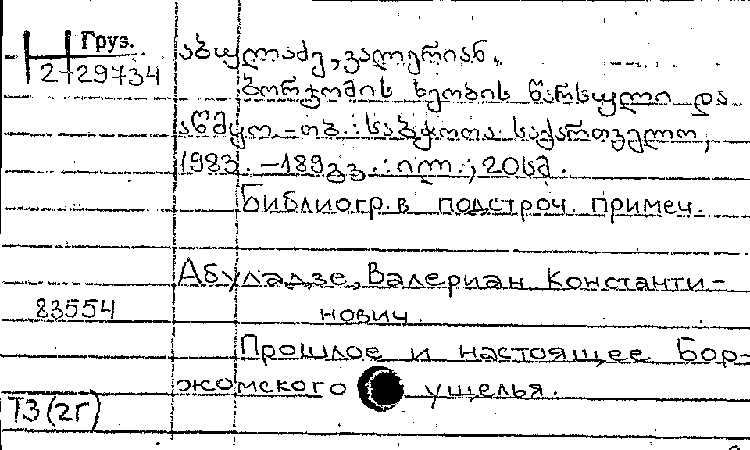 Груз.
2-29734
აბულაძე, ვალერიან.
ბორჯომის ხეობის წარსული და
აწმყო. - თბ.: საბჭოთა საქართველო,
1983. - 189გვ.: ილ.; 20სმ.
Библиогр. в подстроч. примеч.
Абуладзе, Валериан Константи-
83554
нович.
Прошлое и настоящее Бор-
жомского ущелья.
Т3(2Г)